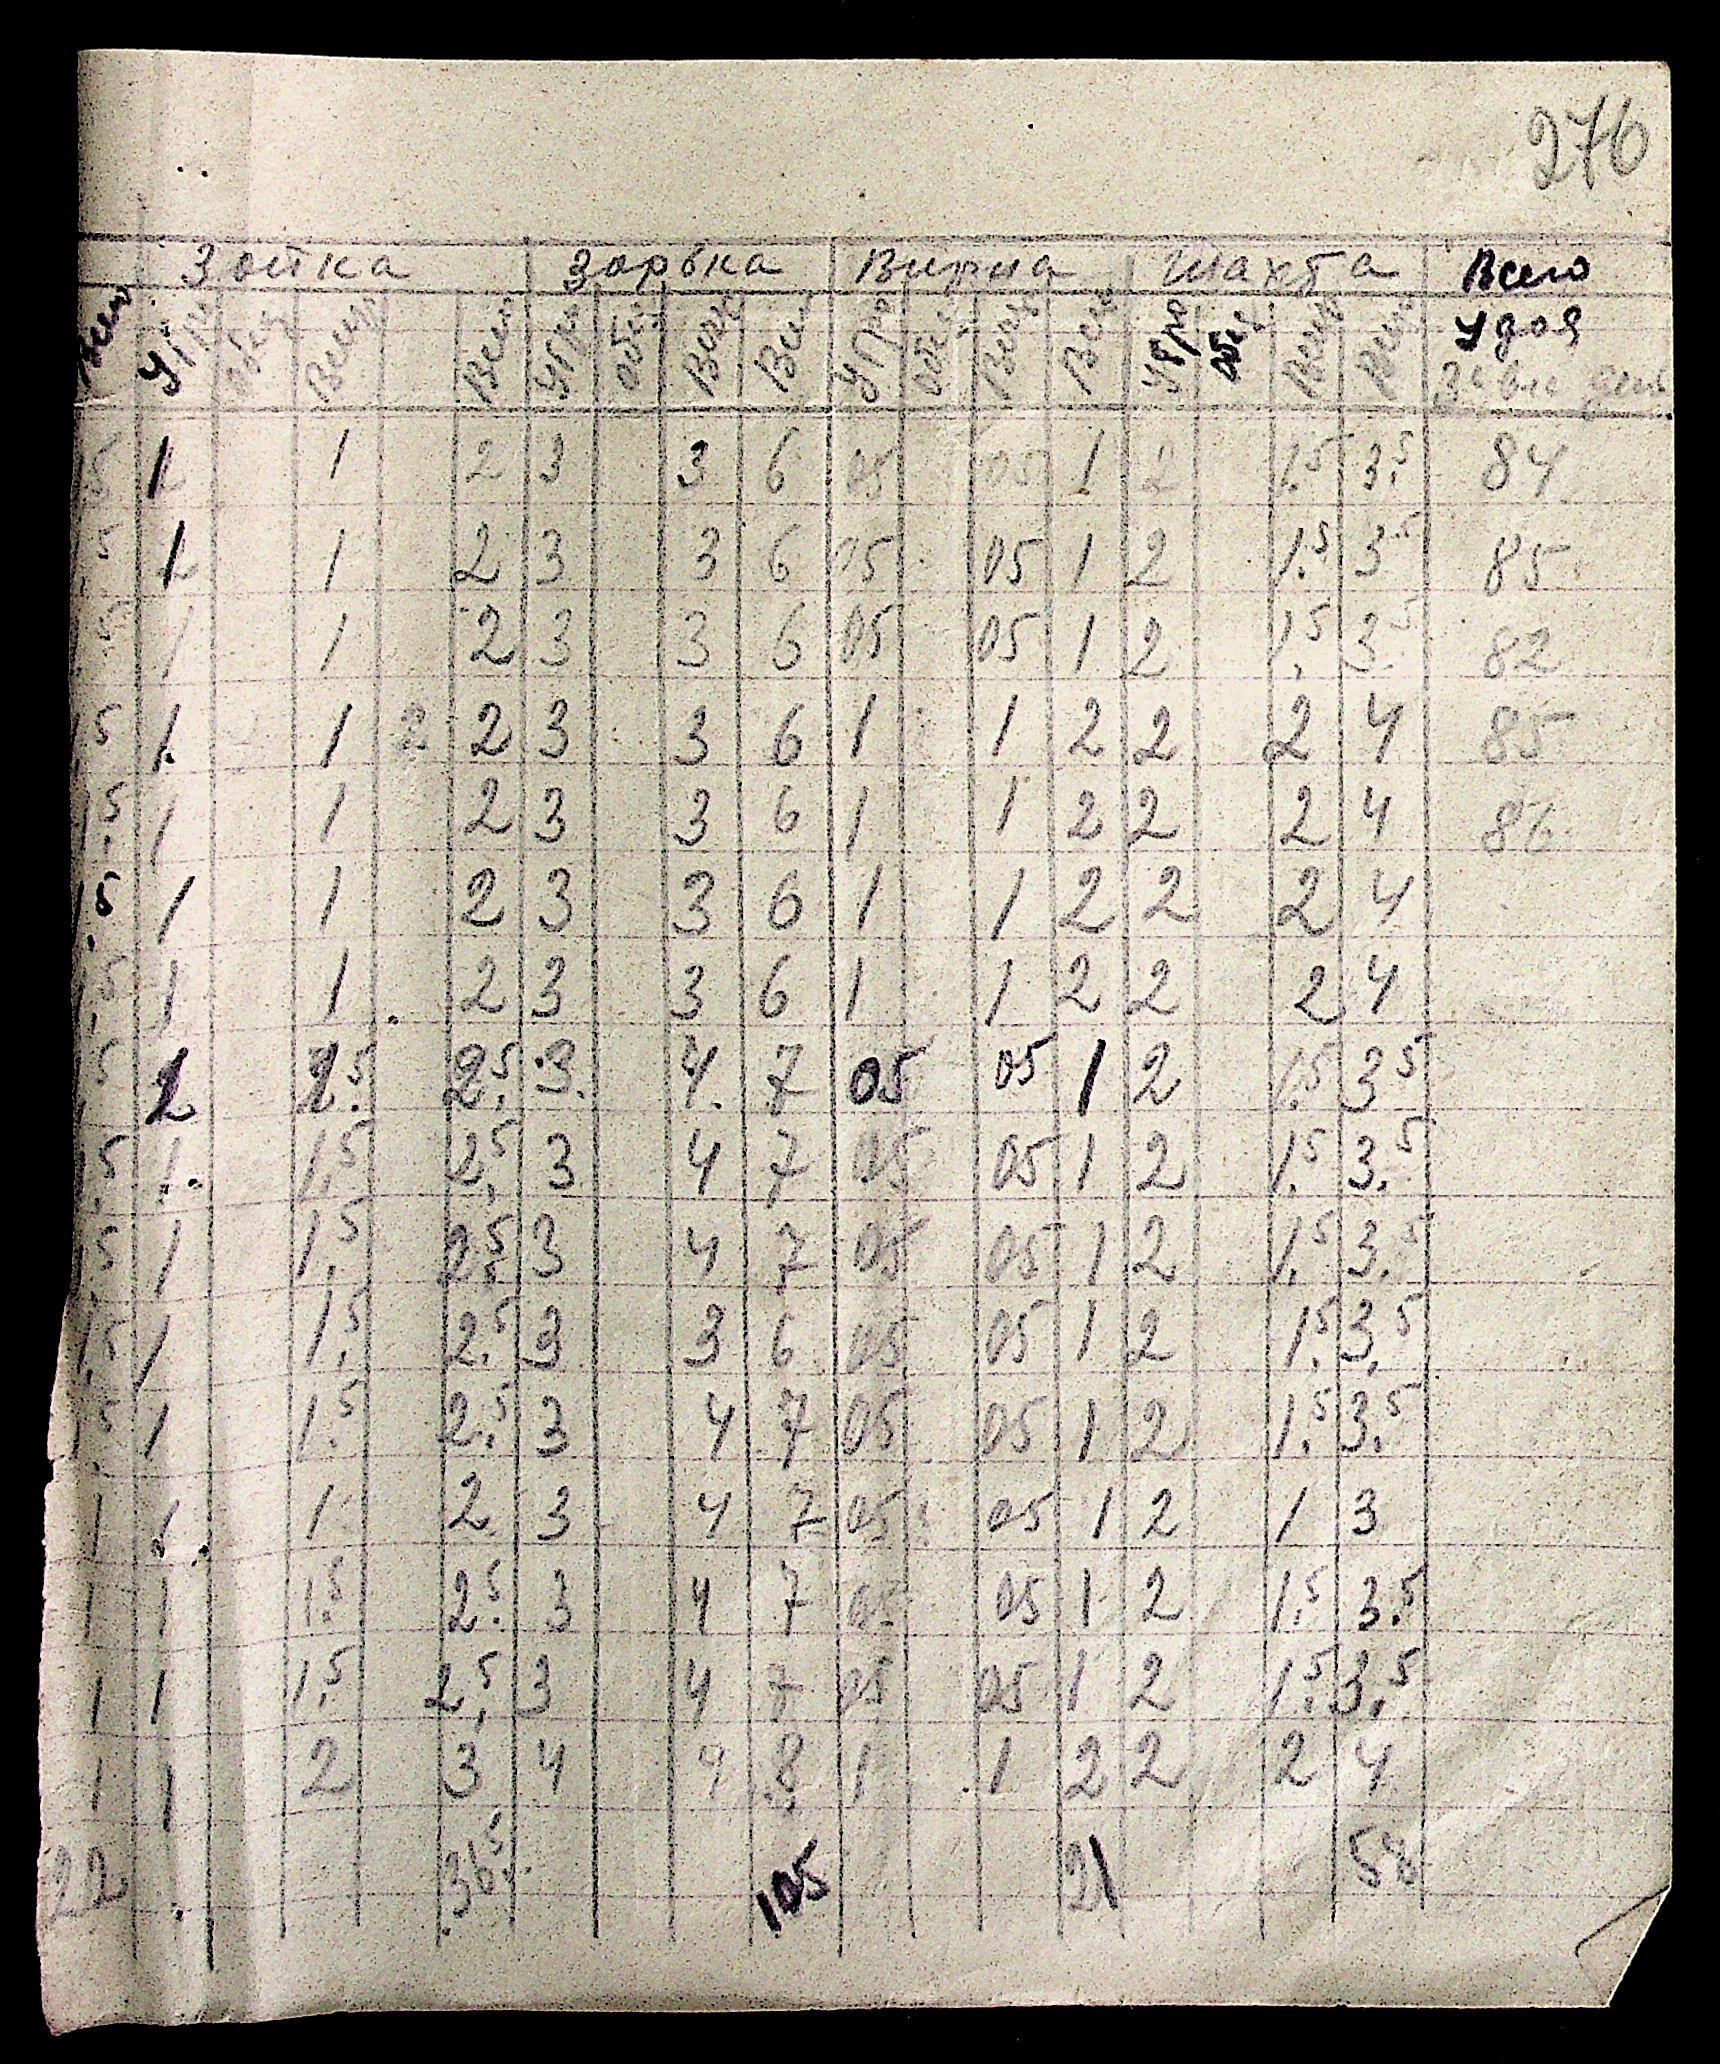 276
Зойка Зорька Вирна Шахта Всего
Всего Утро обед Вечер Всего Утро обед Вечер Всего Утро обед Вечер Всего Утро обед Вечер Всего удоя
за один день
1.5 1 1 2 3 3 6 05 05 1 2 1.5 3.5 84
1.5 1 1 2 3 3 6 05 05 1 2 1.5 3.5 85
1.5 1 1 2 3 3 6 05 05 1 2 1.5 3.5 82
1.5 1 1 2 2 3 3 6 1 1 2 2 2 4 85
1.5 1 1 2 3 3 6 1 1 2 2 2 4 86
1.5 1 1 2 3 3 6 1 1 2 2 2 4
1.5 1 1 2 3 3 6 1 1 2 2 2 4
1.5 1 1.5 2.5 3 4 7 05 05 1 2 1.5 3.5
1.5 1 1.5 2.5 3 4 7 05 05 1 2 1.5 3.5
1.5 1 1.5 2.5 3 4 7 05 05 1 2 1.5 3.5
1.5 1 1.5 2.5 3 3 6 05 05 1 2 1.5 3.5
1.5 1 1.5 2.5 3 4 7 05 05 1 2 1.5 3.5
1 1 1 2 3 4 7 05 05 1 2 1 3
1 1 1.5 2.5 3 4 7 05 05 1 2 1.5 3.5
1 1 1.5 2.5 3 4 7 05 05 1 2 1.5 3.5
1 1 2 3 4 4 8 1 1 2 2 2 4
22 36.5 105 21 58